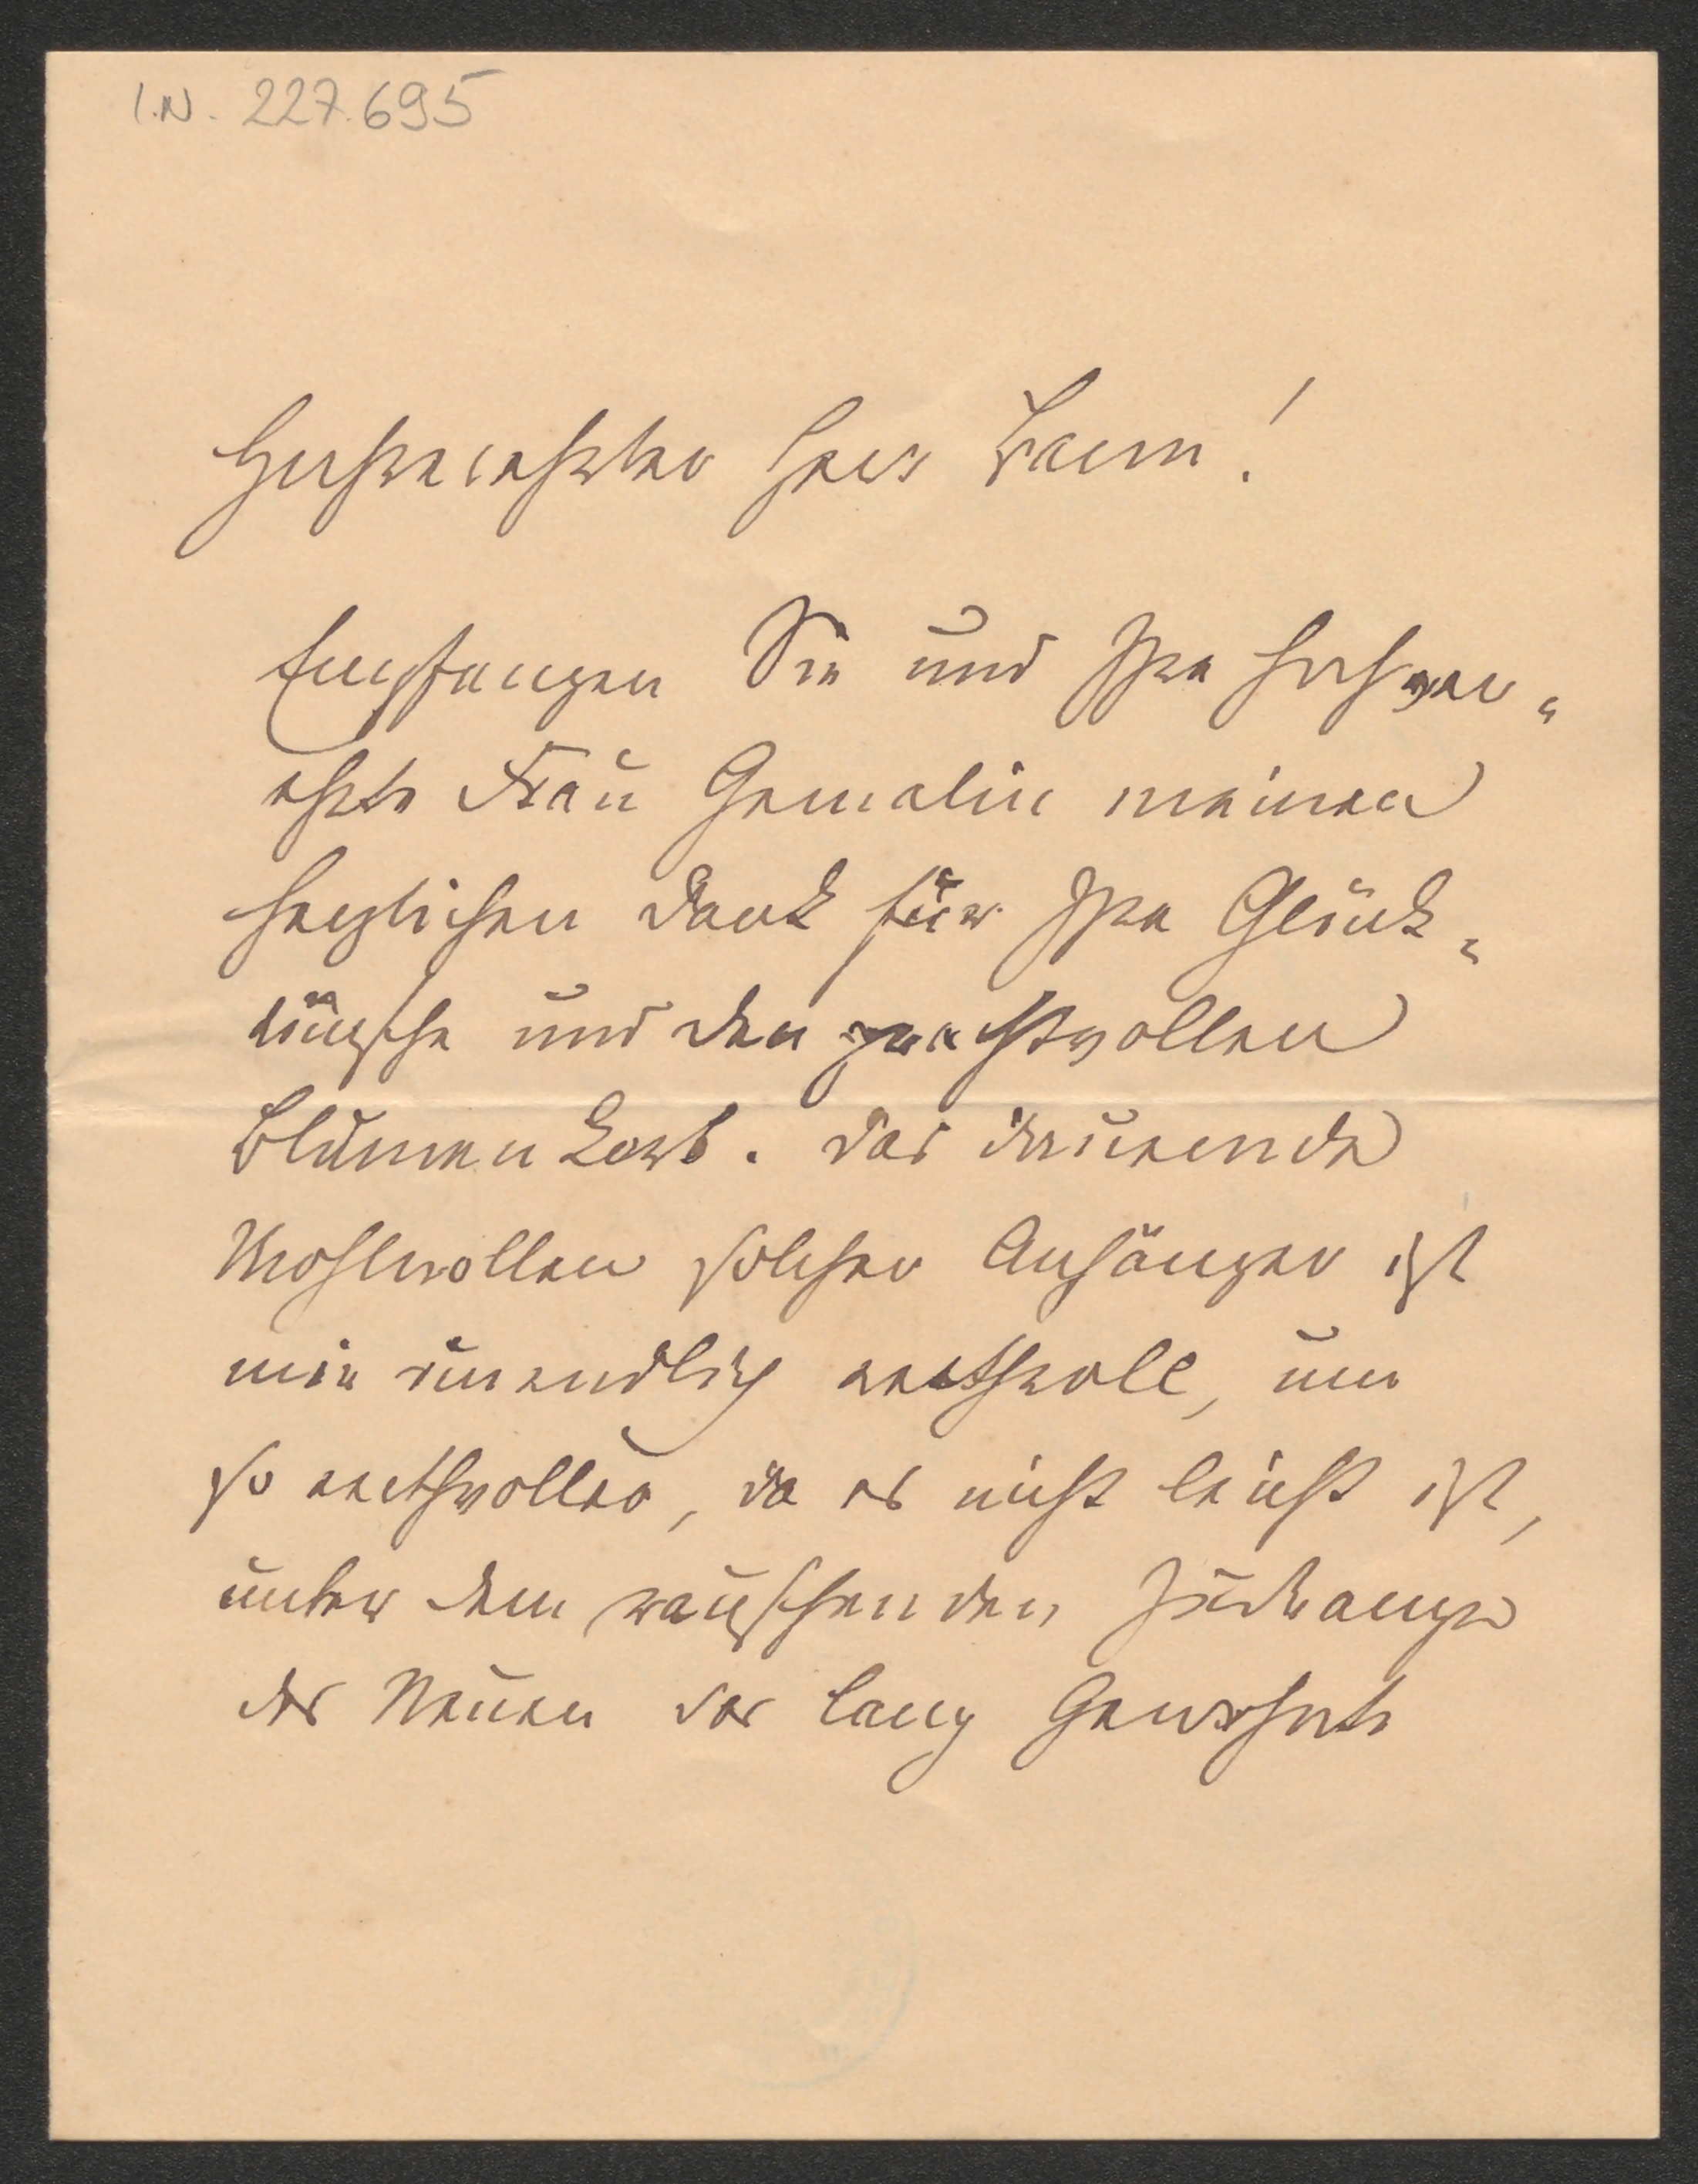 I.N. 227.695
Hochverehrter Herr
Empfangen Sie und Ihre hochver-
ehrte Frau Gemalin meinen
herzlichen Dank für Ihre Glück-
wünsche und den prachtvollen
Blumenkorb. Das dauernde
Wohlwollen solcher Anhänger ist
mir unendlich werthvoll, um
so werthvoller, da es nicht leicht ist,
unter dem rauschenden Zudrange
des Neuen das lang Gewohnte